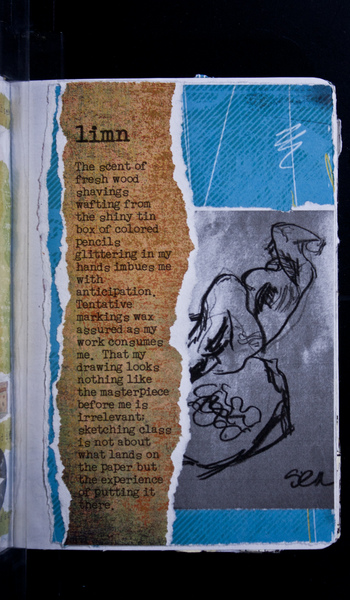 limn
The scent of
fresh wood
shavings
wafting from
the shiny tin
box of colored
pencils
glittering in my
hands imbues me
with
anticipation.
Tentative
markings wax
assured as my
work consumes
me. That my
drawing looks
nothing like
the masterpiece
before me is
irrelevant;
sketching class
is not about
what lands on
the paper but
the experience
of putting it
there.